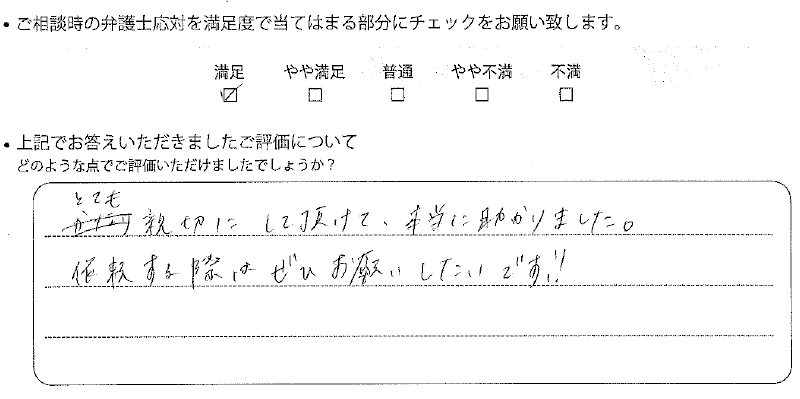 • ご相談時の弁護士応対を満足度で当てはまる部分にチェックをお願い致します。
満足 やや満足 普通 やや不満 不満
☑ □ □ □ □
• 上記でお答えいただきましたご評価について
どのような点でご評価いただけましたでしょうか？
とても
親切にして頂けて、本当に助かりました。
依頼する際はぜひお願いしたいです!!